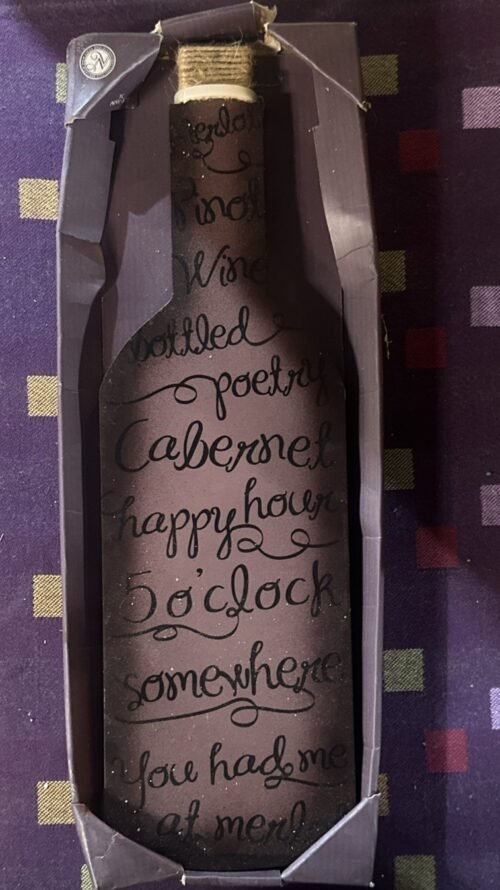 Merlot
Pinot
Wine
bottled
poetry
Cabernet
happy hour
5 o'clock
somewhere
You had me
at merlot